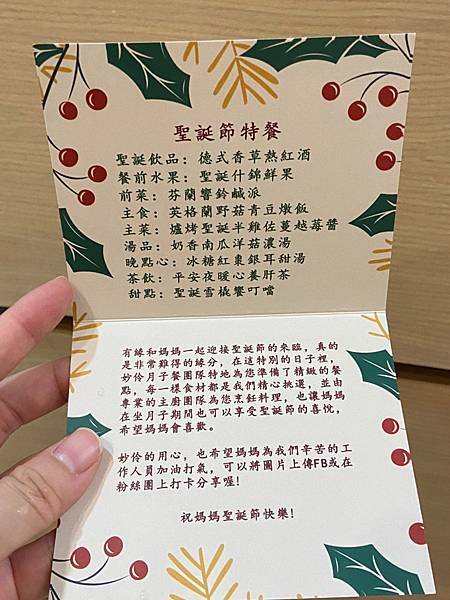 聖誕節特餐
聖誕飲品：德式香草熱紅酒
餐前水果：聖誕什錦鮮果
前菜：芬蘭響鈴鹹派
主食：英格蘭野菇青豆燉飯
主菜：爐烤聖誕半雞佐蔓越莓醬
湯品：奶香南瓜洋菇濃湯
晚點心：冰糖紅棗銀耳甜湯
茶飲：平安夜暖心養肝茶
甜點：聖誕雪橇響叮噹
有緣和媽媽一起迎接聖誕節的來臨，真的
是非常難得的緣分，在這特別的日子裡，
妙伶月子餐團隊特地為您準備了精緻的餐
點，每一樣食材都是我們精心挑選，並由
專業的主廚團隊為您烹飪料理，也讓媽媽
在坐月子期間也可以享受聖誕節的喜悅，
希望媽媽會喜歡。
妙伶的用心，也希望媽媽為我們辛苦的工
作人員加油打氣，可以將圖片上傳FB或在
粉絲團上打卡分享喔！
祝媽媽聖誕節快樂！